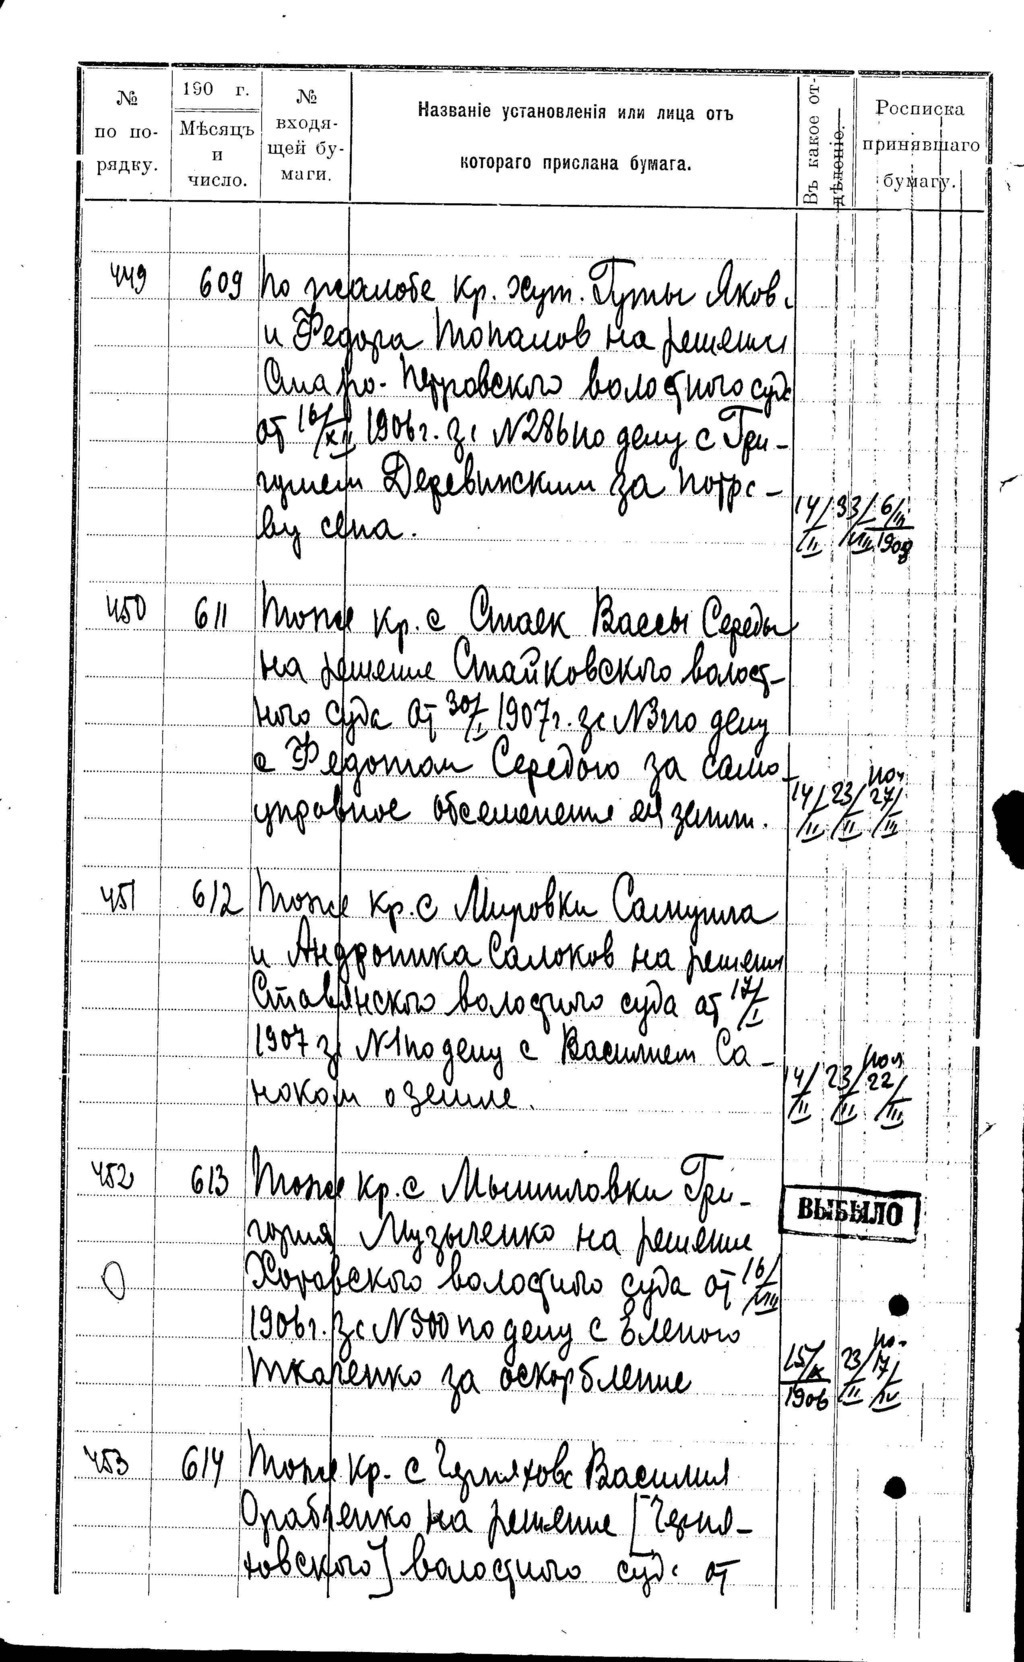 № по порядку.
190 г. Мѣсяцъ и число.
№ входящей бумаги.
Названіе установленія или лица отъ котораго прислана бумага.
Въ какое отдѣленіе.
Росписка принявшаго бумагу.
449 609 по жалобе кр. хут. Гуты Яков.
и Федора Топалов на решение
Старо-Петровского волостного суда
от 16/XII 1906 г. за N286 по делу с Гри-
гулем Деревинским за потра-
ву сена. 14/II 6/III 1908
450 611 тоже кр. с Стаек Вассы Середы
на решение Стайковского волост-
ного суда от 30/I 1907 г. за N3 по делу
с Федотом Середою за само-
управное обсеменение ея земли. 14/II 23/II 27/III
451 612 тоже кр. с Мировки Самуила
и Андроника Саноков на решение
Ставянского волостного суда от 17/I
1907 за N1 по делу с Василием Са-
ноком о земле. 14/II 23/II 22/III
452 613 тоже кр. с Мышиловки Гри-
ВЫБЫЛО
гория Музыченко на решение
Хотовского волостного суда от 16/VIII
1906 г. за N300 по делу с Еленою
Ткаченко за оскорбление 15/X 1906 23/II 17/IV
453 614 тоже кр. с Черняхова Василия
на решение [Черня-
ховского] волостного суда от